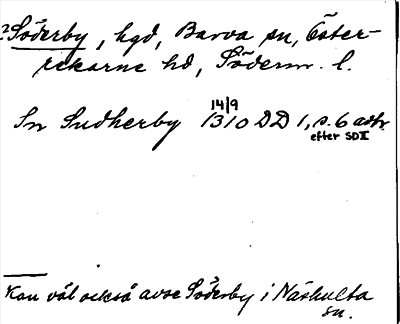 ?Söderby, hgd, Barva sn, Öster-
rekarne hd, Söderm. l.
14/9
Sn Sudherby 1310 DD 1, s. 6 avskr.
efter SD II
Kan väl också avse Söderby i Näshulta
sn.